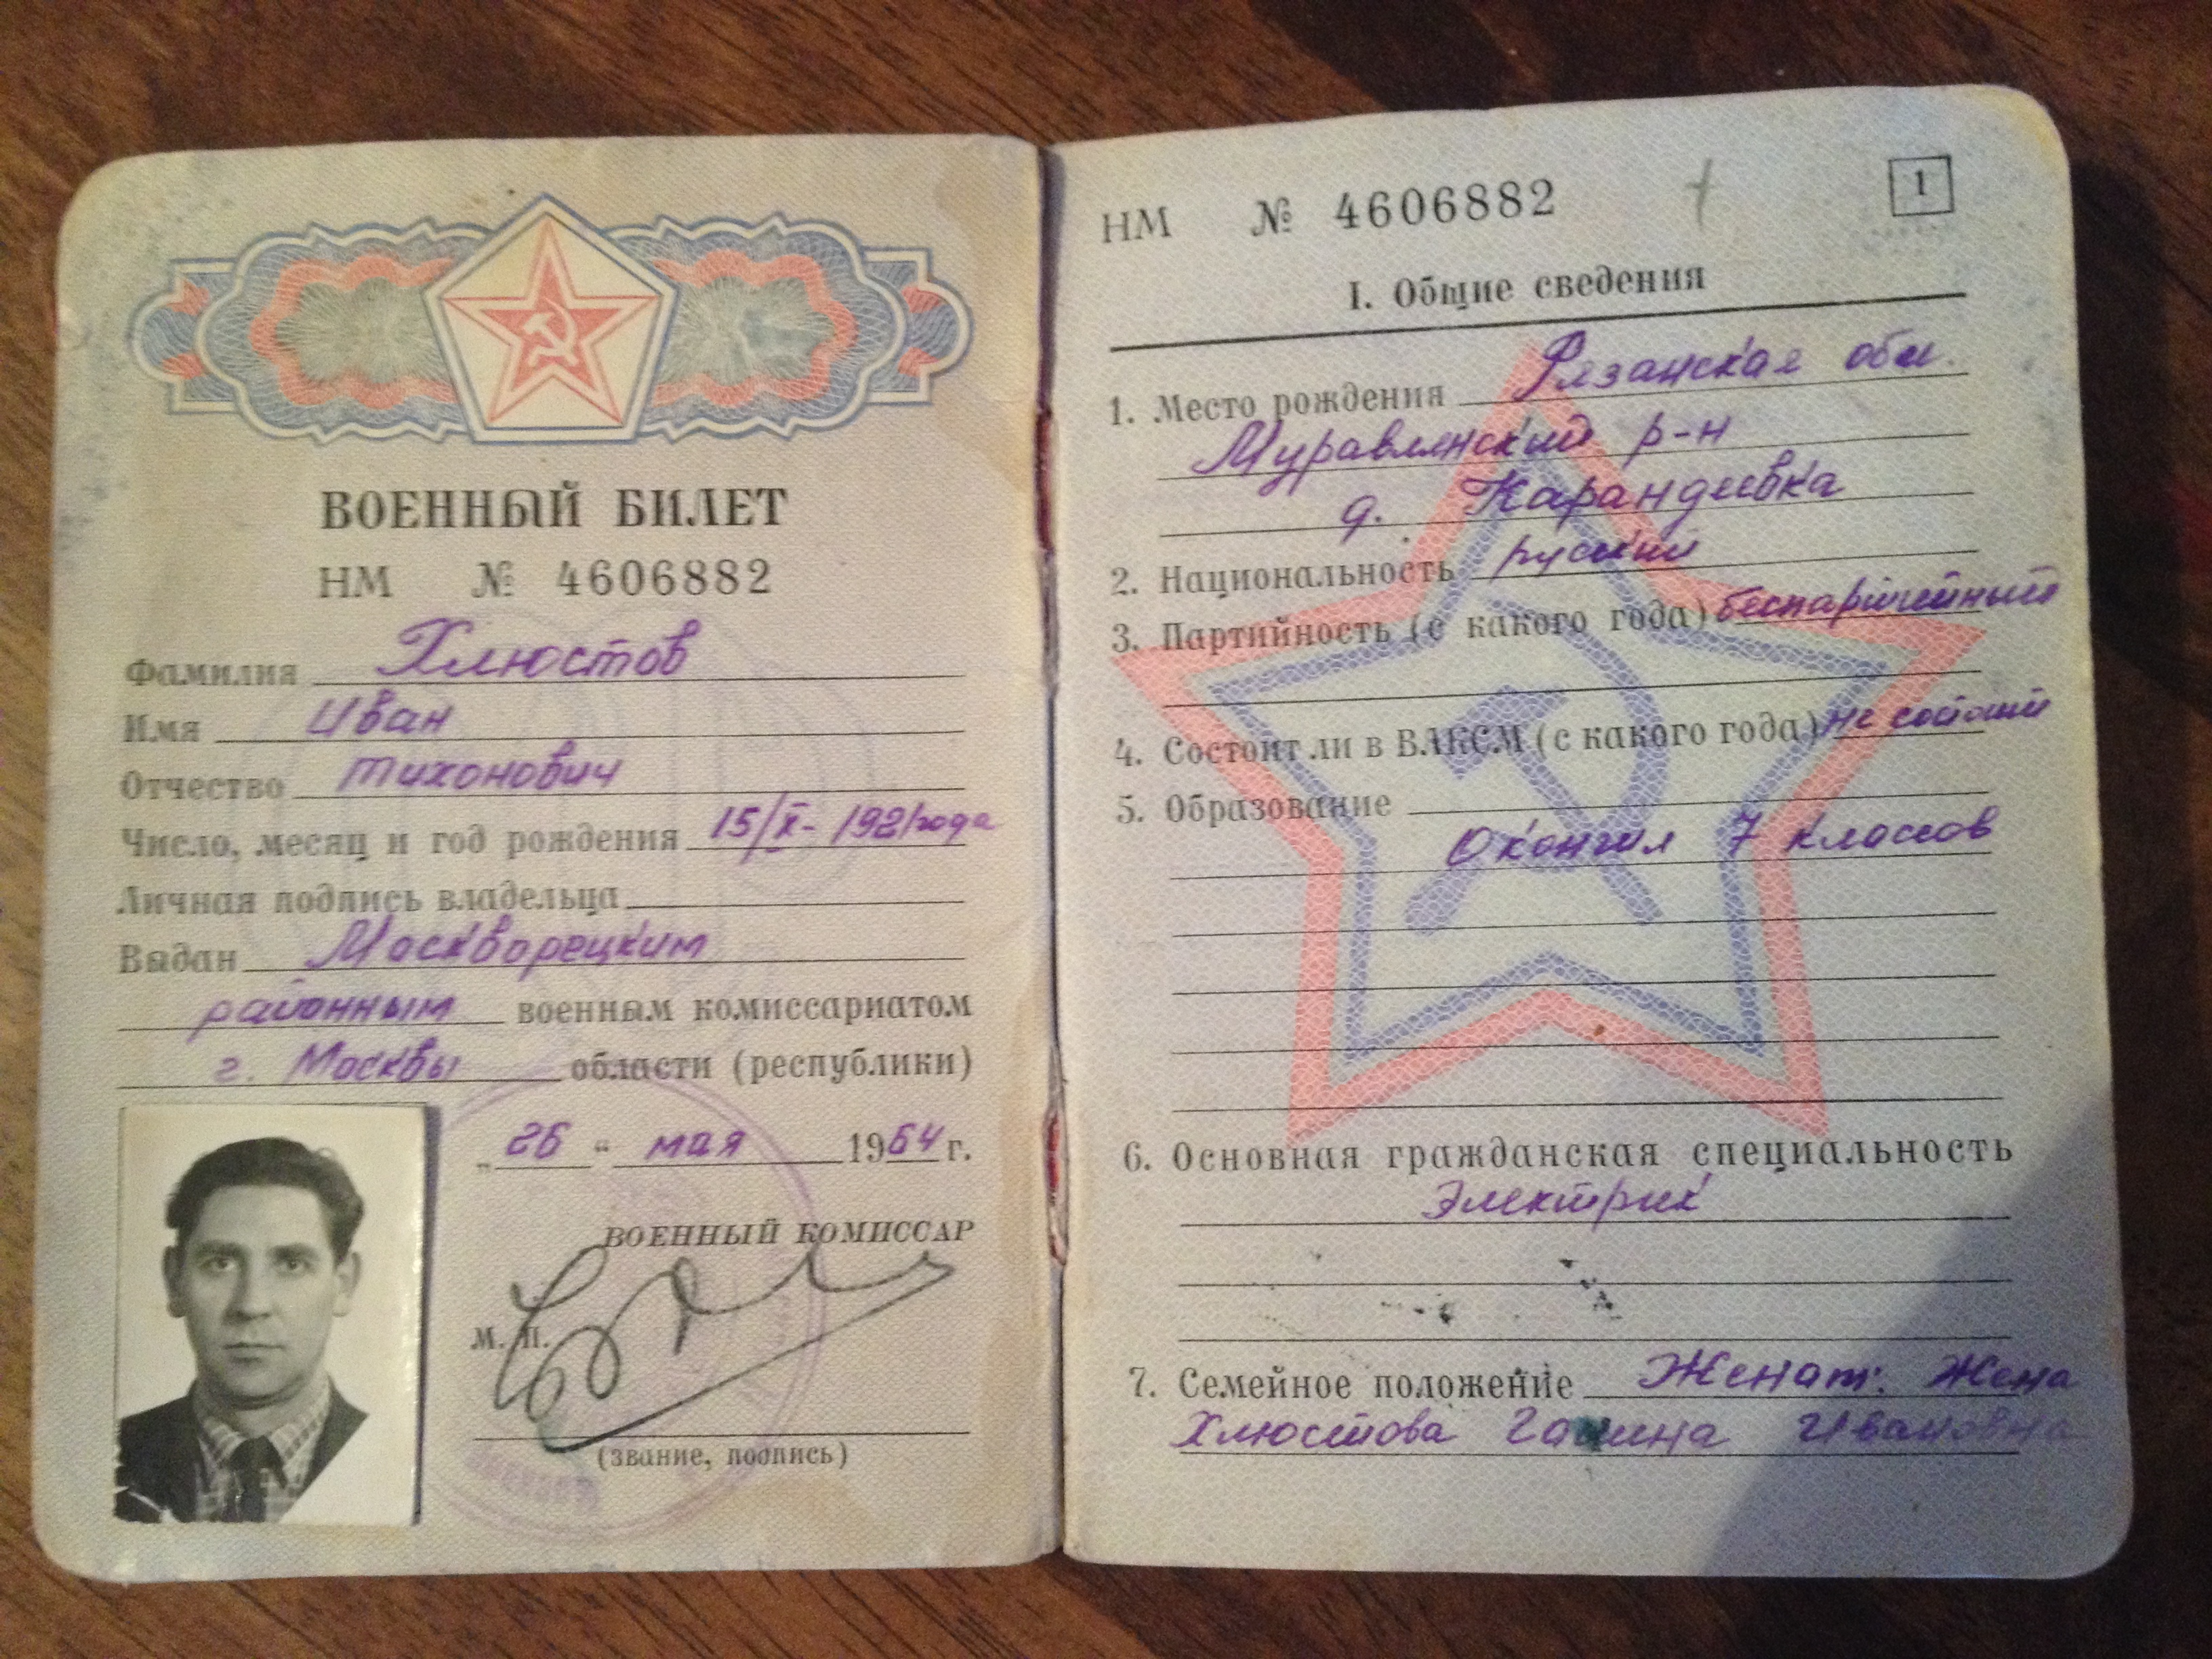 ВОЕННЫЙ БИЛЕТ
НМ № 4606882
Фамилия Хлюстов
Имя Иван
Отчество Тихонович
Число, месяц и год рождения 15/X- 1921 года
Личная подпись владельца
Выдан Москворецким
районным военным комиссариатом
г. Москвы области (республики)
„26“ мая 1964 г.
ВОЕННЫЙ КОМИССАР
М. П.
(звание, подпись)
НМ № 4606882
1
I. Общие сведения
1. Место рождения Рязанская обл.
Муравлянский р-н
д. Карандеевка
2. Национальность русский
3. Партийность (с какого года) беспартийный
4. Состоит ли в ВЛКСМ (с какого года) не состоит
5. Образование
Окончил 7 классов
6. Основная гражданская специальность
Электрик
7. Семейное положение Женат: Жена
Хлюстова Галина Ивановна